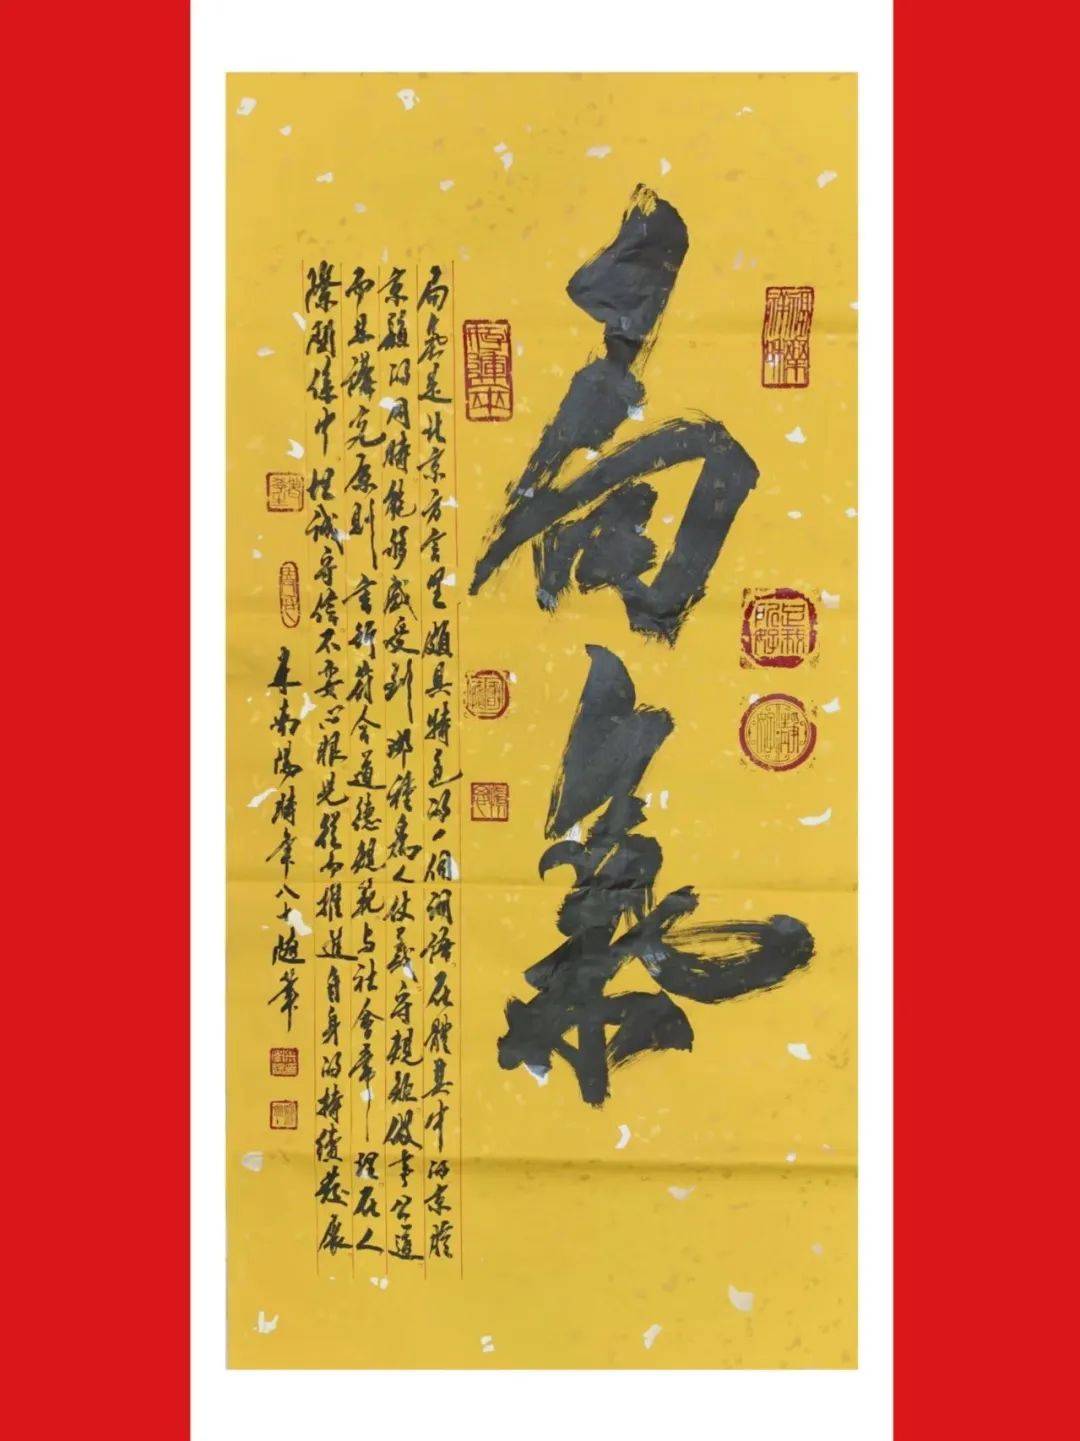 局氣
局氣是北京方言里頗具特色的一個詞語在體其中的京腔
京韻的同時能够感受到那種為人仗義守規矩做事公道
而且講究原則言行符合道德規範与社會常理在人
際關係中坦誠守信不耍心眼兒從而推進自身的持續發展
米南陽時年八十隨筆